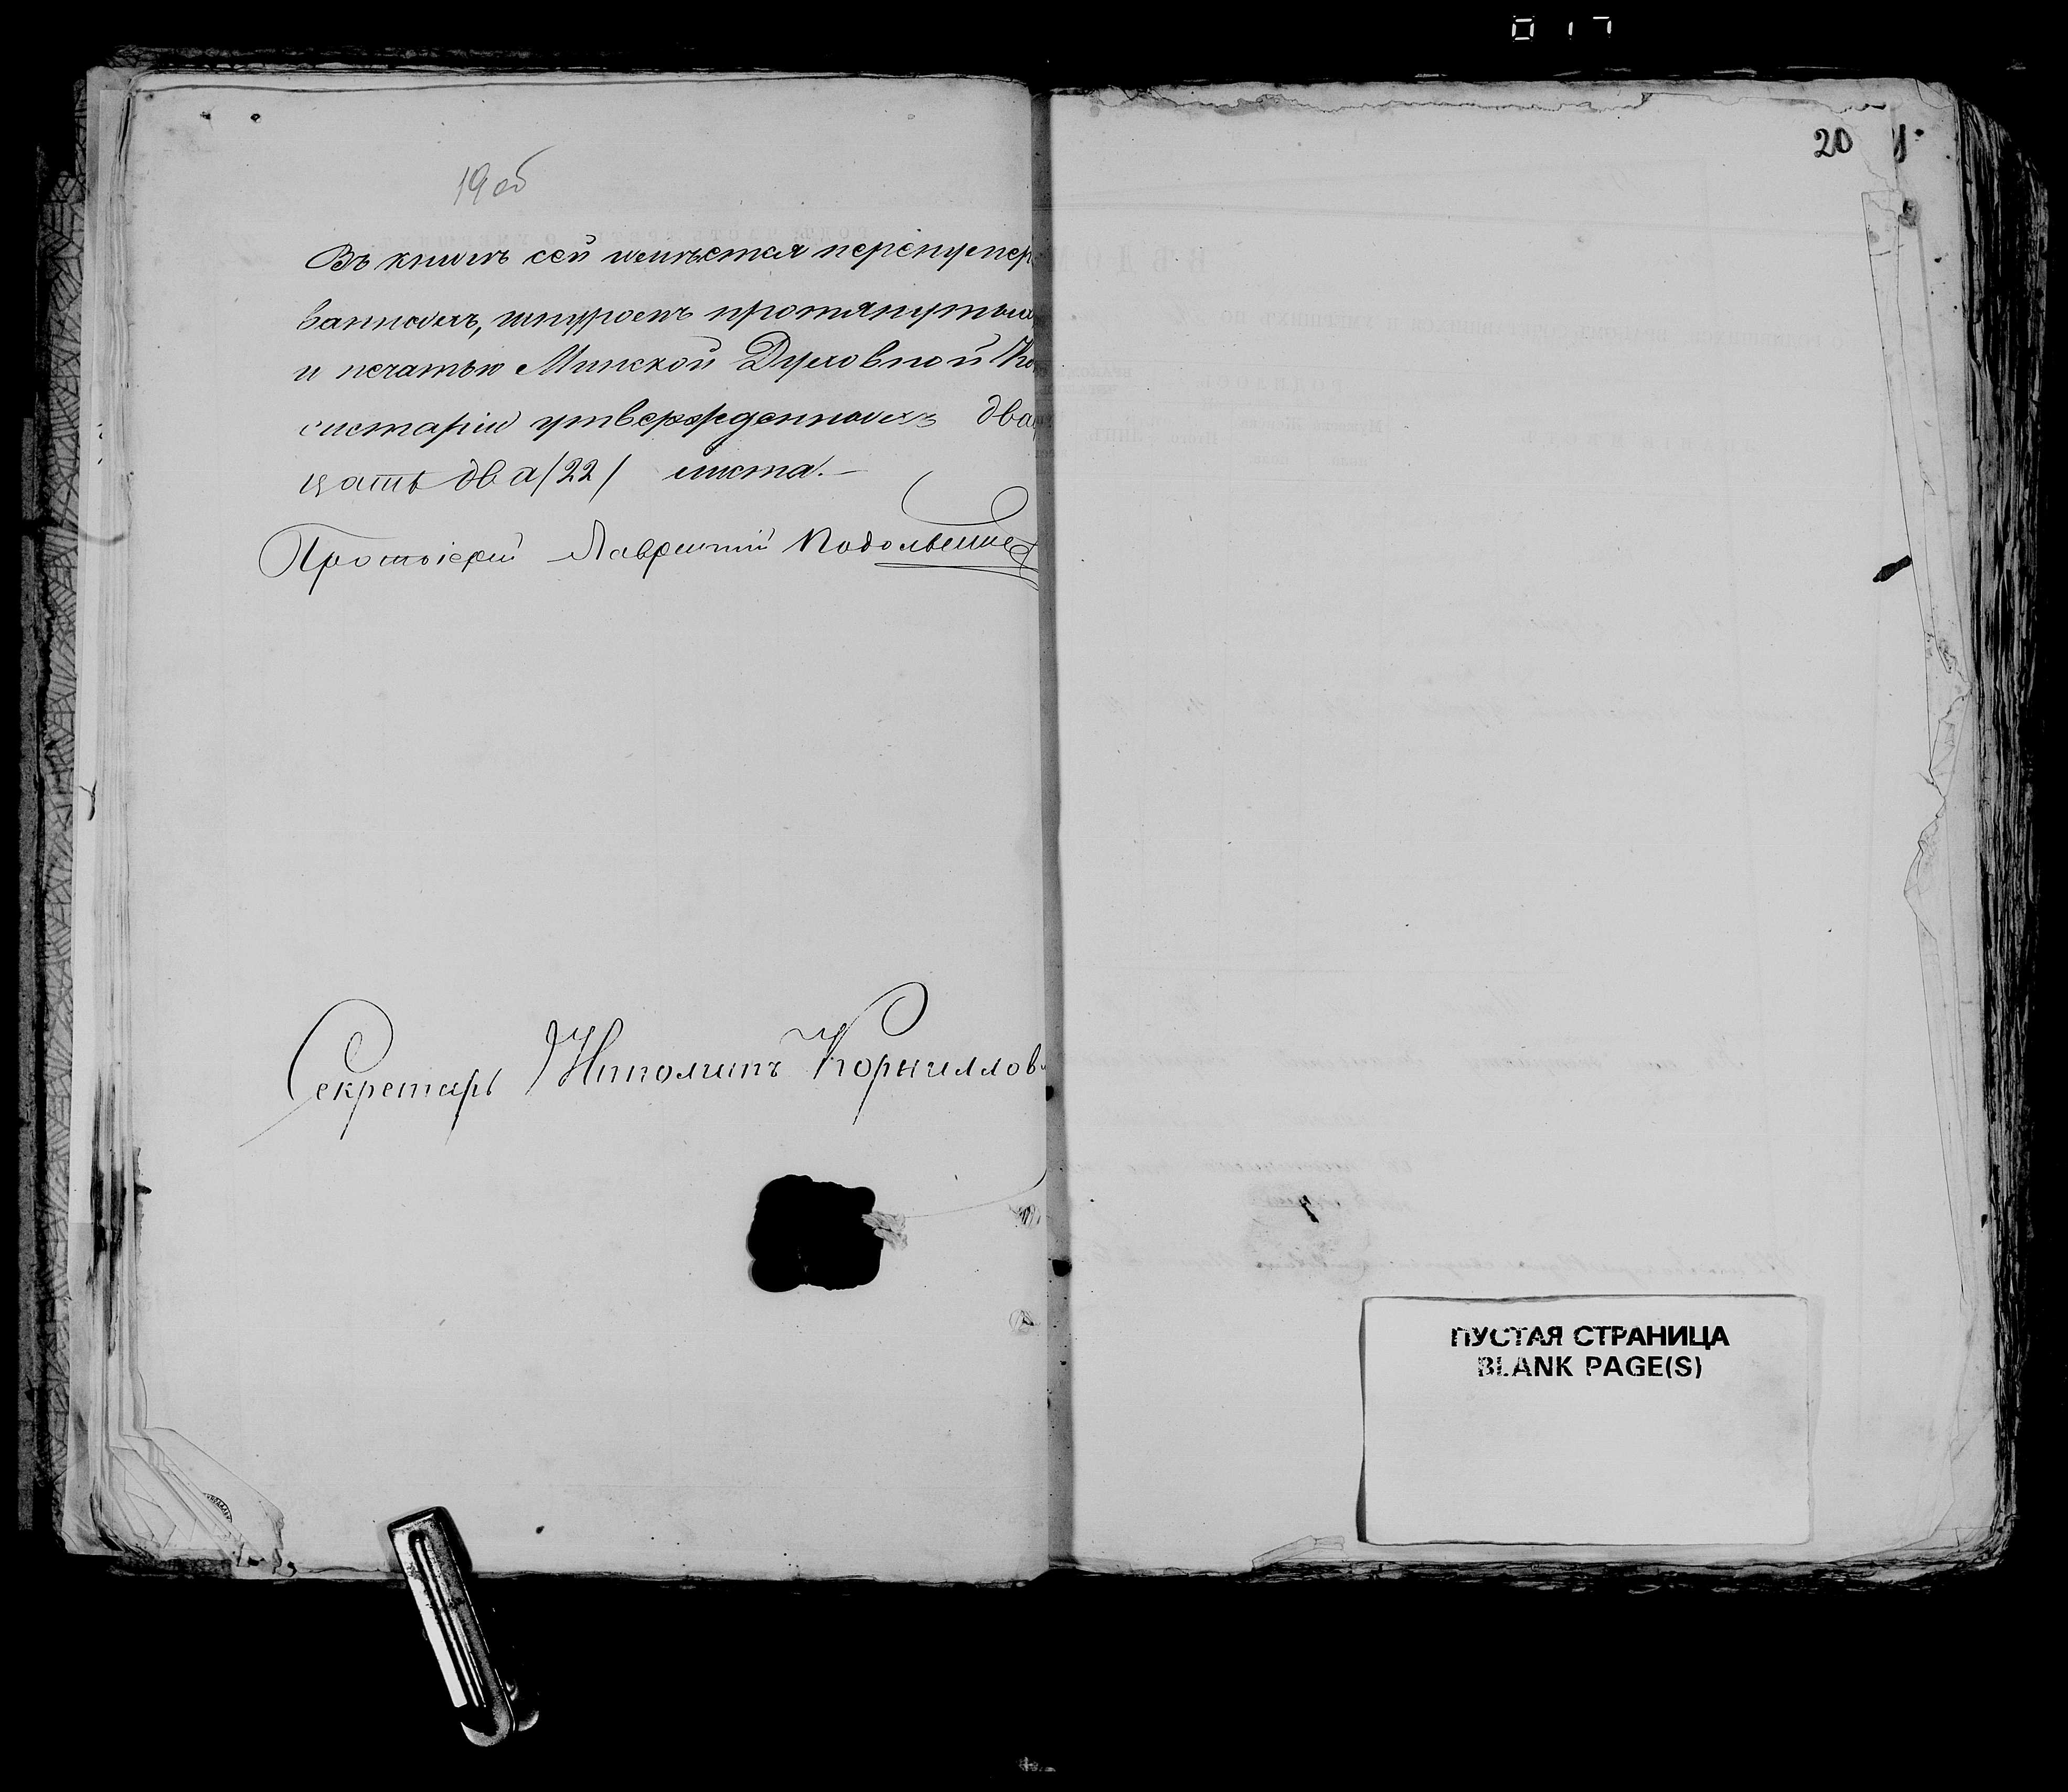 017
19 об
Въ книгѣ сей имѣется перенумер
ванныхъ, шнуромъ протянутых
и печатью Минской Духовной Ко
систоріи утвержденныхъ два
цать два /22/ листа.—
Протоіерей Лаврентій
Секретарь Ипполитъ Корниллов
20
ПУСТАЯ СТРАНИЦА
BLANK PAGE(S)